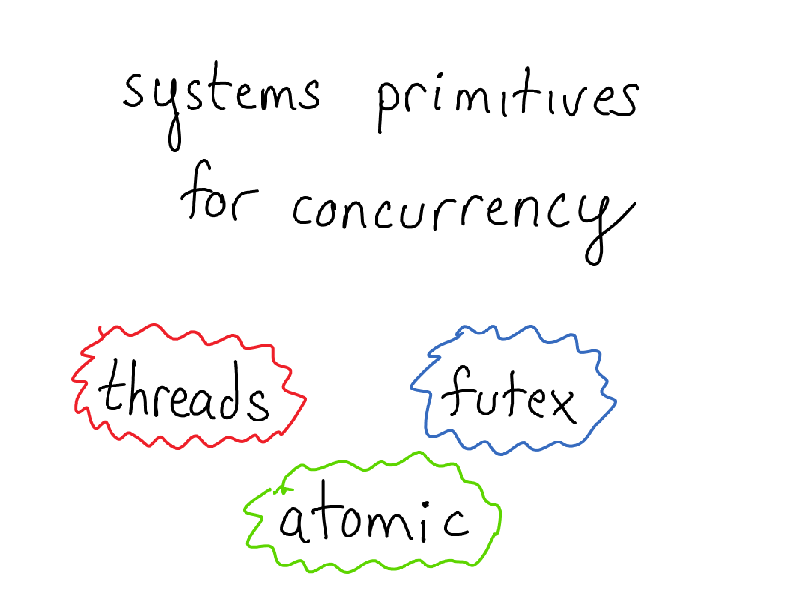 systems primitives
for concurrency
threads
futex
atomic